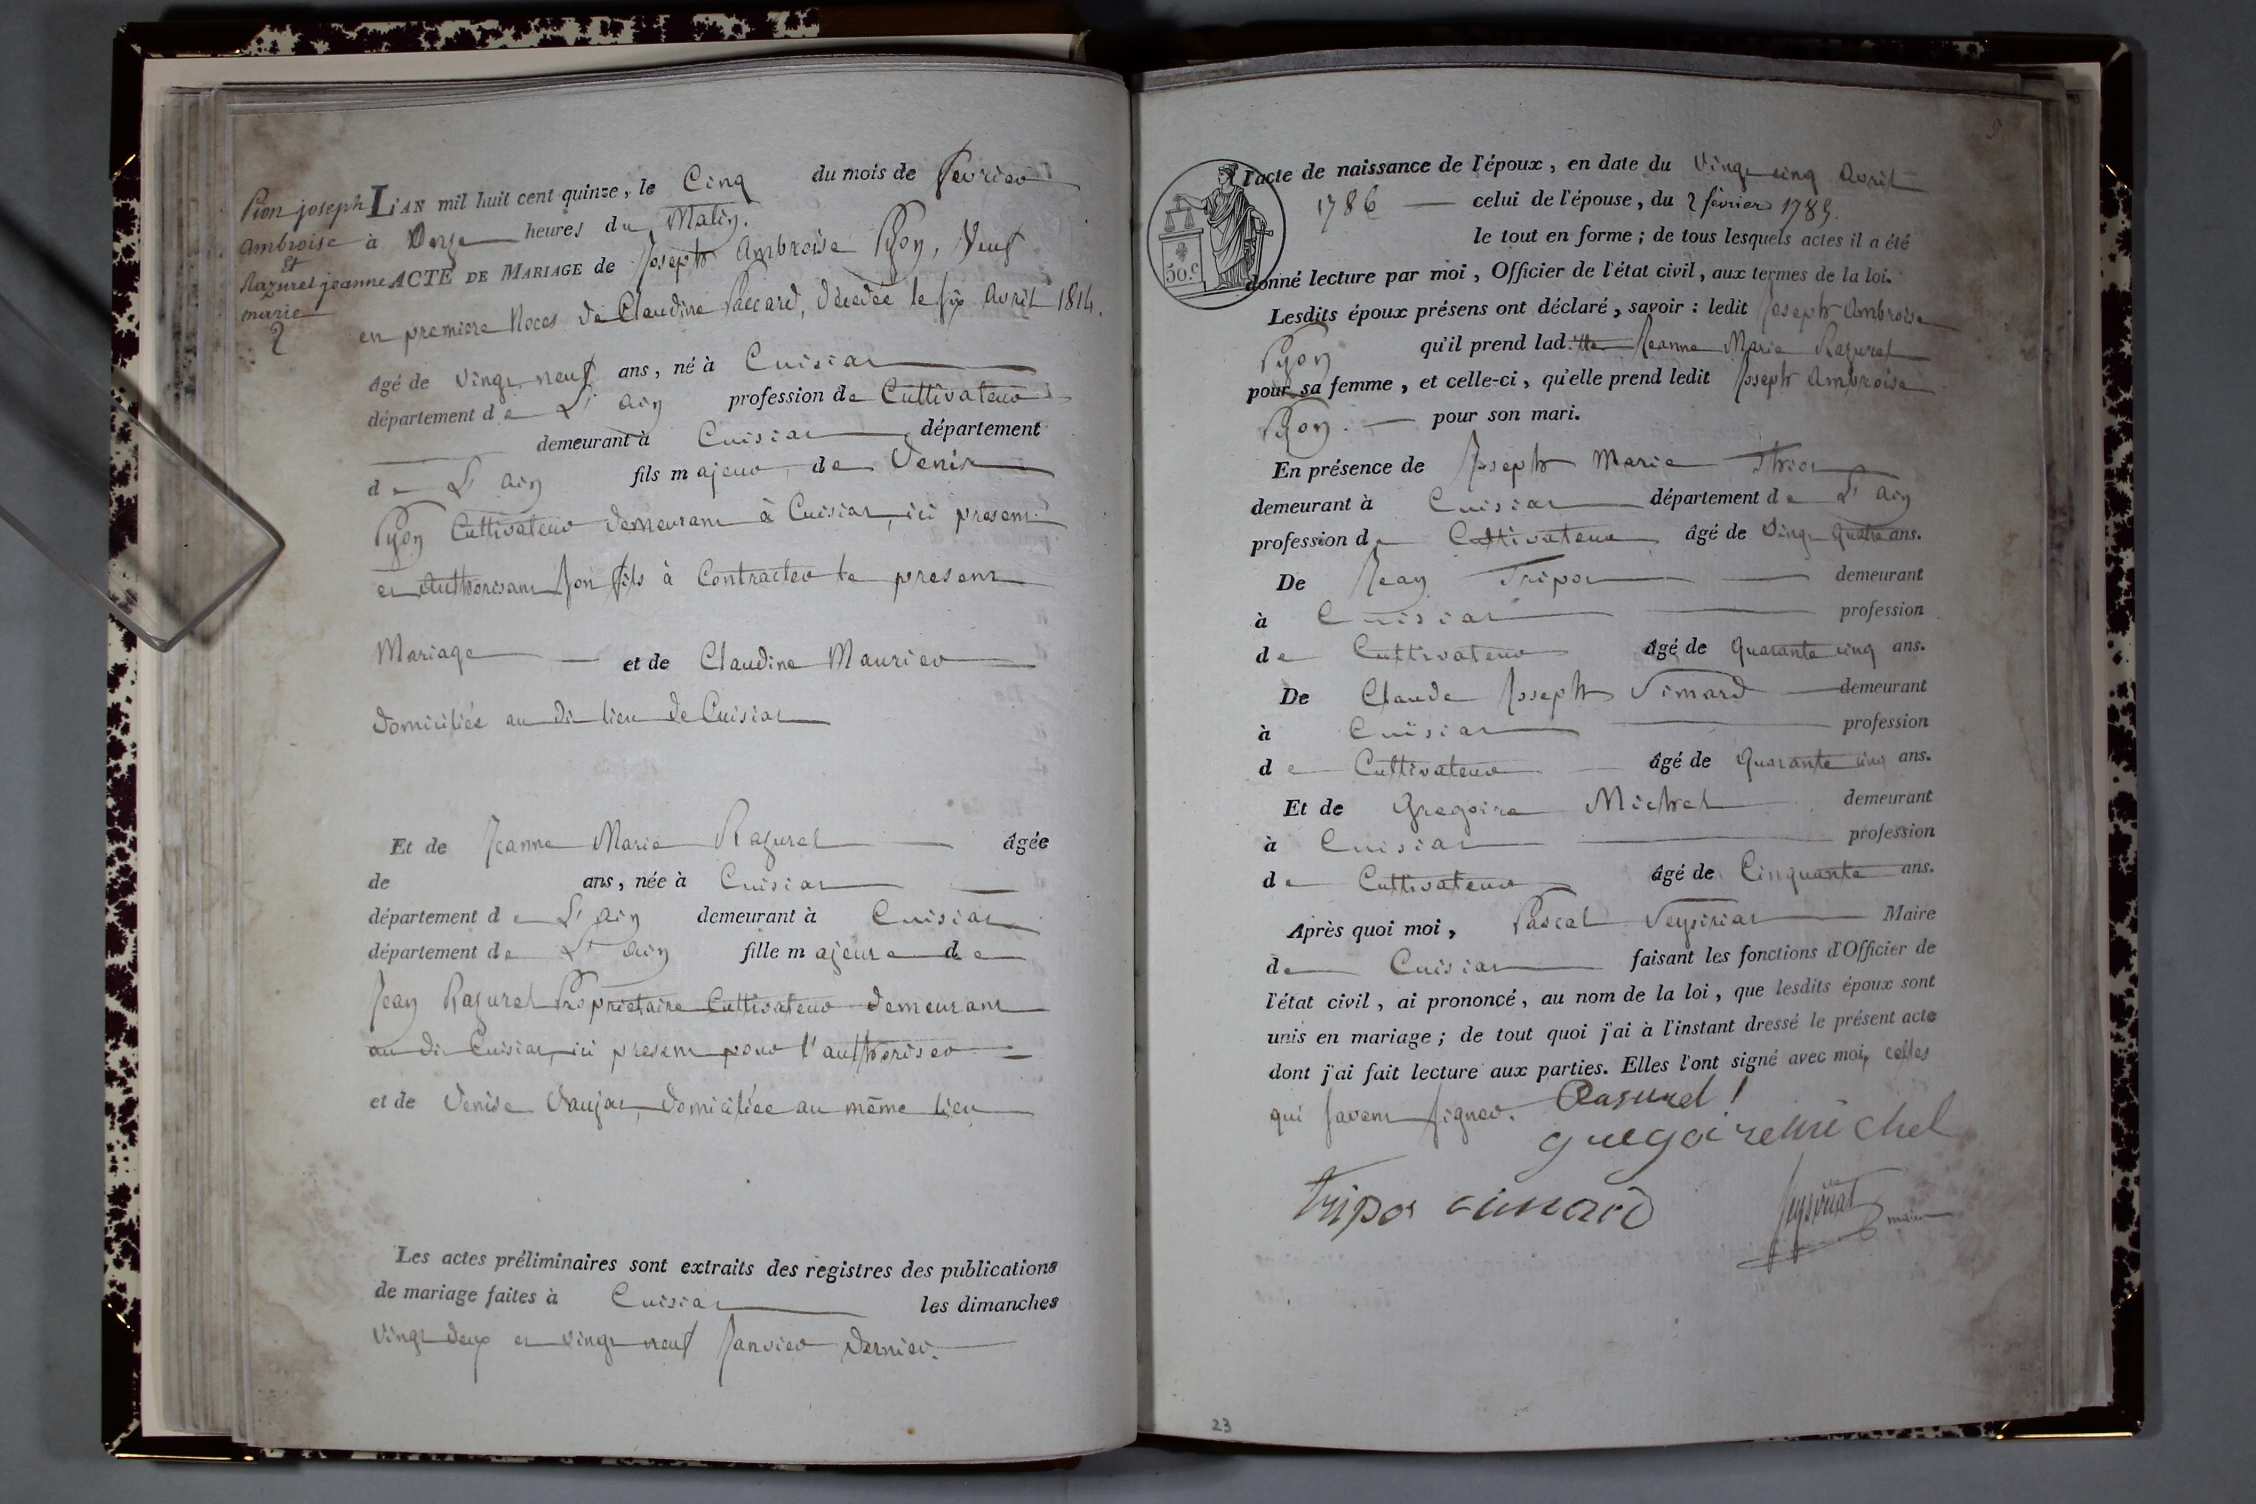 Pion joseph
ambroise
et
Razurel jeanne
marie
2
L'AN mil huit cent quinze, le Cinq du mois de fevrier
à Onze heures du Matin.
ACTE DE MARIAGE de Joseph Ambroise Pyon, Veuf
en premiere Noces de Claudine Paccard, décedée le six Avril 1814.
âgé de vingt neuf ans, né à Cuisiat
département de L'ain profession de Cultivateur
demeurant à Cuisiat département
de L'ain fils majeur de Denis
Pyon Cultivateur demeurant à Cuisiat, ici present
et Authorisant son fils à Contracter le present
Mariage et de Claudine Maurier
domiciliés au dit lieu de Cuisiat
Et de Jeanne Marie Razurel âgée
de ans, née à Cuisiat
département de L'ain demeurant à Cuisiat
département de L'ain fille majeure de
Jean Razurel Proprietaire Cultivateur demeurant
au dit Cuisiat, ici present pour l'authoriser
et de Denise Vaujat, domiciliée au même lieu
Les actes préliminaires sont extraits des registres des publications
de mariage faites à Cuisiat les dimanches
vingt deux et vingt neuf Janvier dernier.
50.c
l'acte de naissance de l'époux, en date du vingt cinq avril
1786 celui de l'épouse, du 2 février 1789.
le tout en forme; de tous lesquels actes il a été
donné lecture par moi, Officier de l'état civil, aux termes de la loi.
Lesdits époux présens ont déclaré, savoir: ledit Joseph Ambroise
Pyon qu'il prend lad.tte Jeanne Marie Razurel
pour sa femme, et celle-ci, qu'elle prend ledit Joseph Ambroise
Pyon. pour son mari.
En présence de Joseph Marie
demeurant à Cuisiat département de L'ain
profession de Cultivateur âgé de vingt quatre ans.
De Jean Tripoz demeurant
à Cuisiat profession
de Cultivateur âgé de quarante cinq ans.
De Claude Joseph Simard demeurant
à Cuisiat profession
de Cultivateur âgé de quarante cinq ans.
Et de Gregoire Michel demeurant
à Cuisiat profession
de Cultivateur âgé de Cinquante ans.
Après quoi moi, Pascal Veysiriat Maire
de Cuisiat faisant les fonctions d'Officier de
l'état civil, ai prononcé, au nom de la loi, que lesdits époux sont
unis en mariage; de tout quoi j'ai à l'instant dressé le présent acte
dont j'ai fait lecture aux parties. Elles l'ont signé avec moi, celles
qui savent signer. Rasurel
gregoire michel
tripoz simard
maire
23